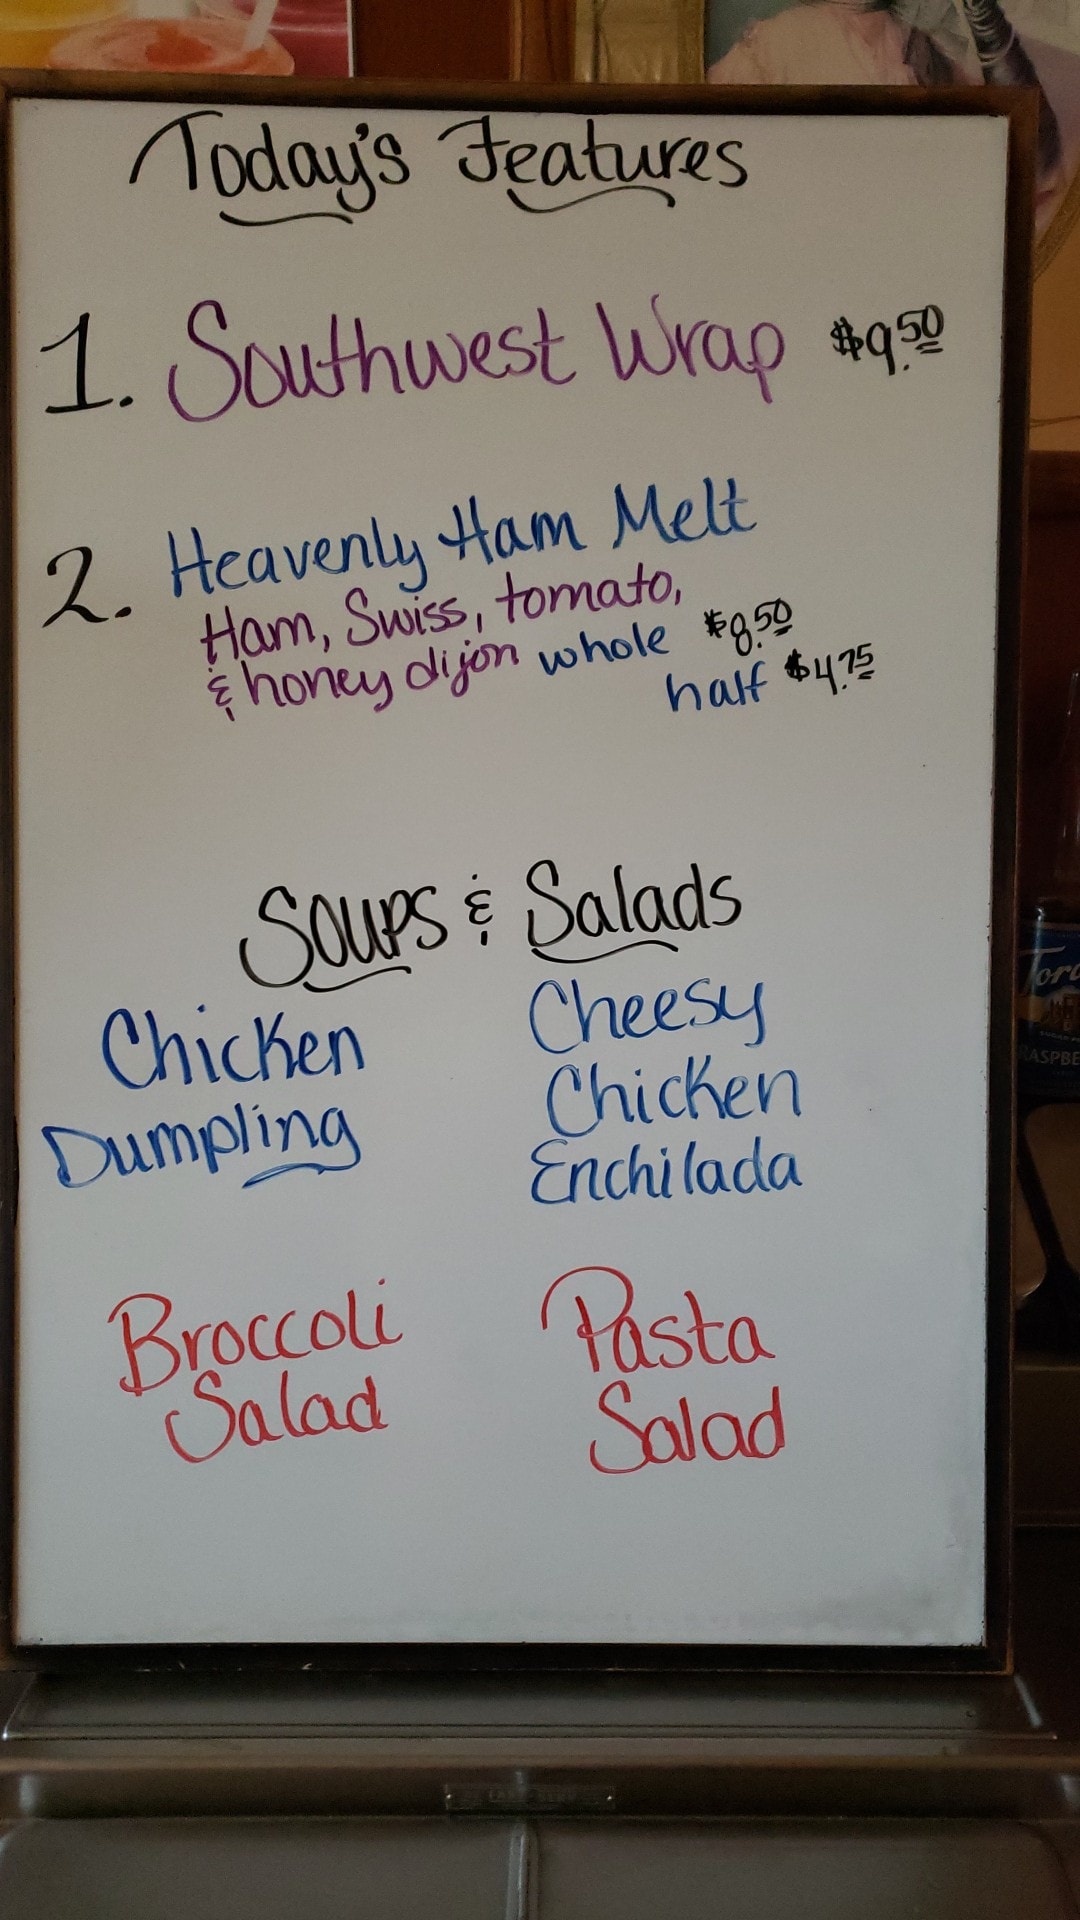 Today's Features
1. Southwest Wrap $9.50
2. Heavenly Ham Melt
Ham, Swiss, tomato,
& honey dijon whole $8.50
half $4.75
Soups & Salads
Chicken
Dumpling
Cheesy
Chicken
Enchilada
Broccoli
Salad
Pasta
Salad